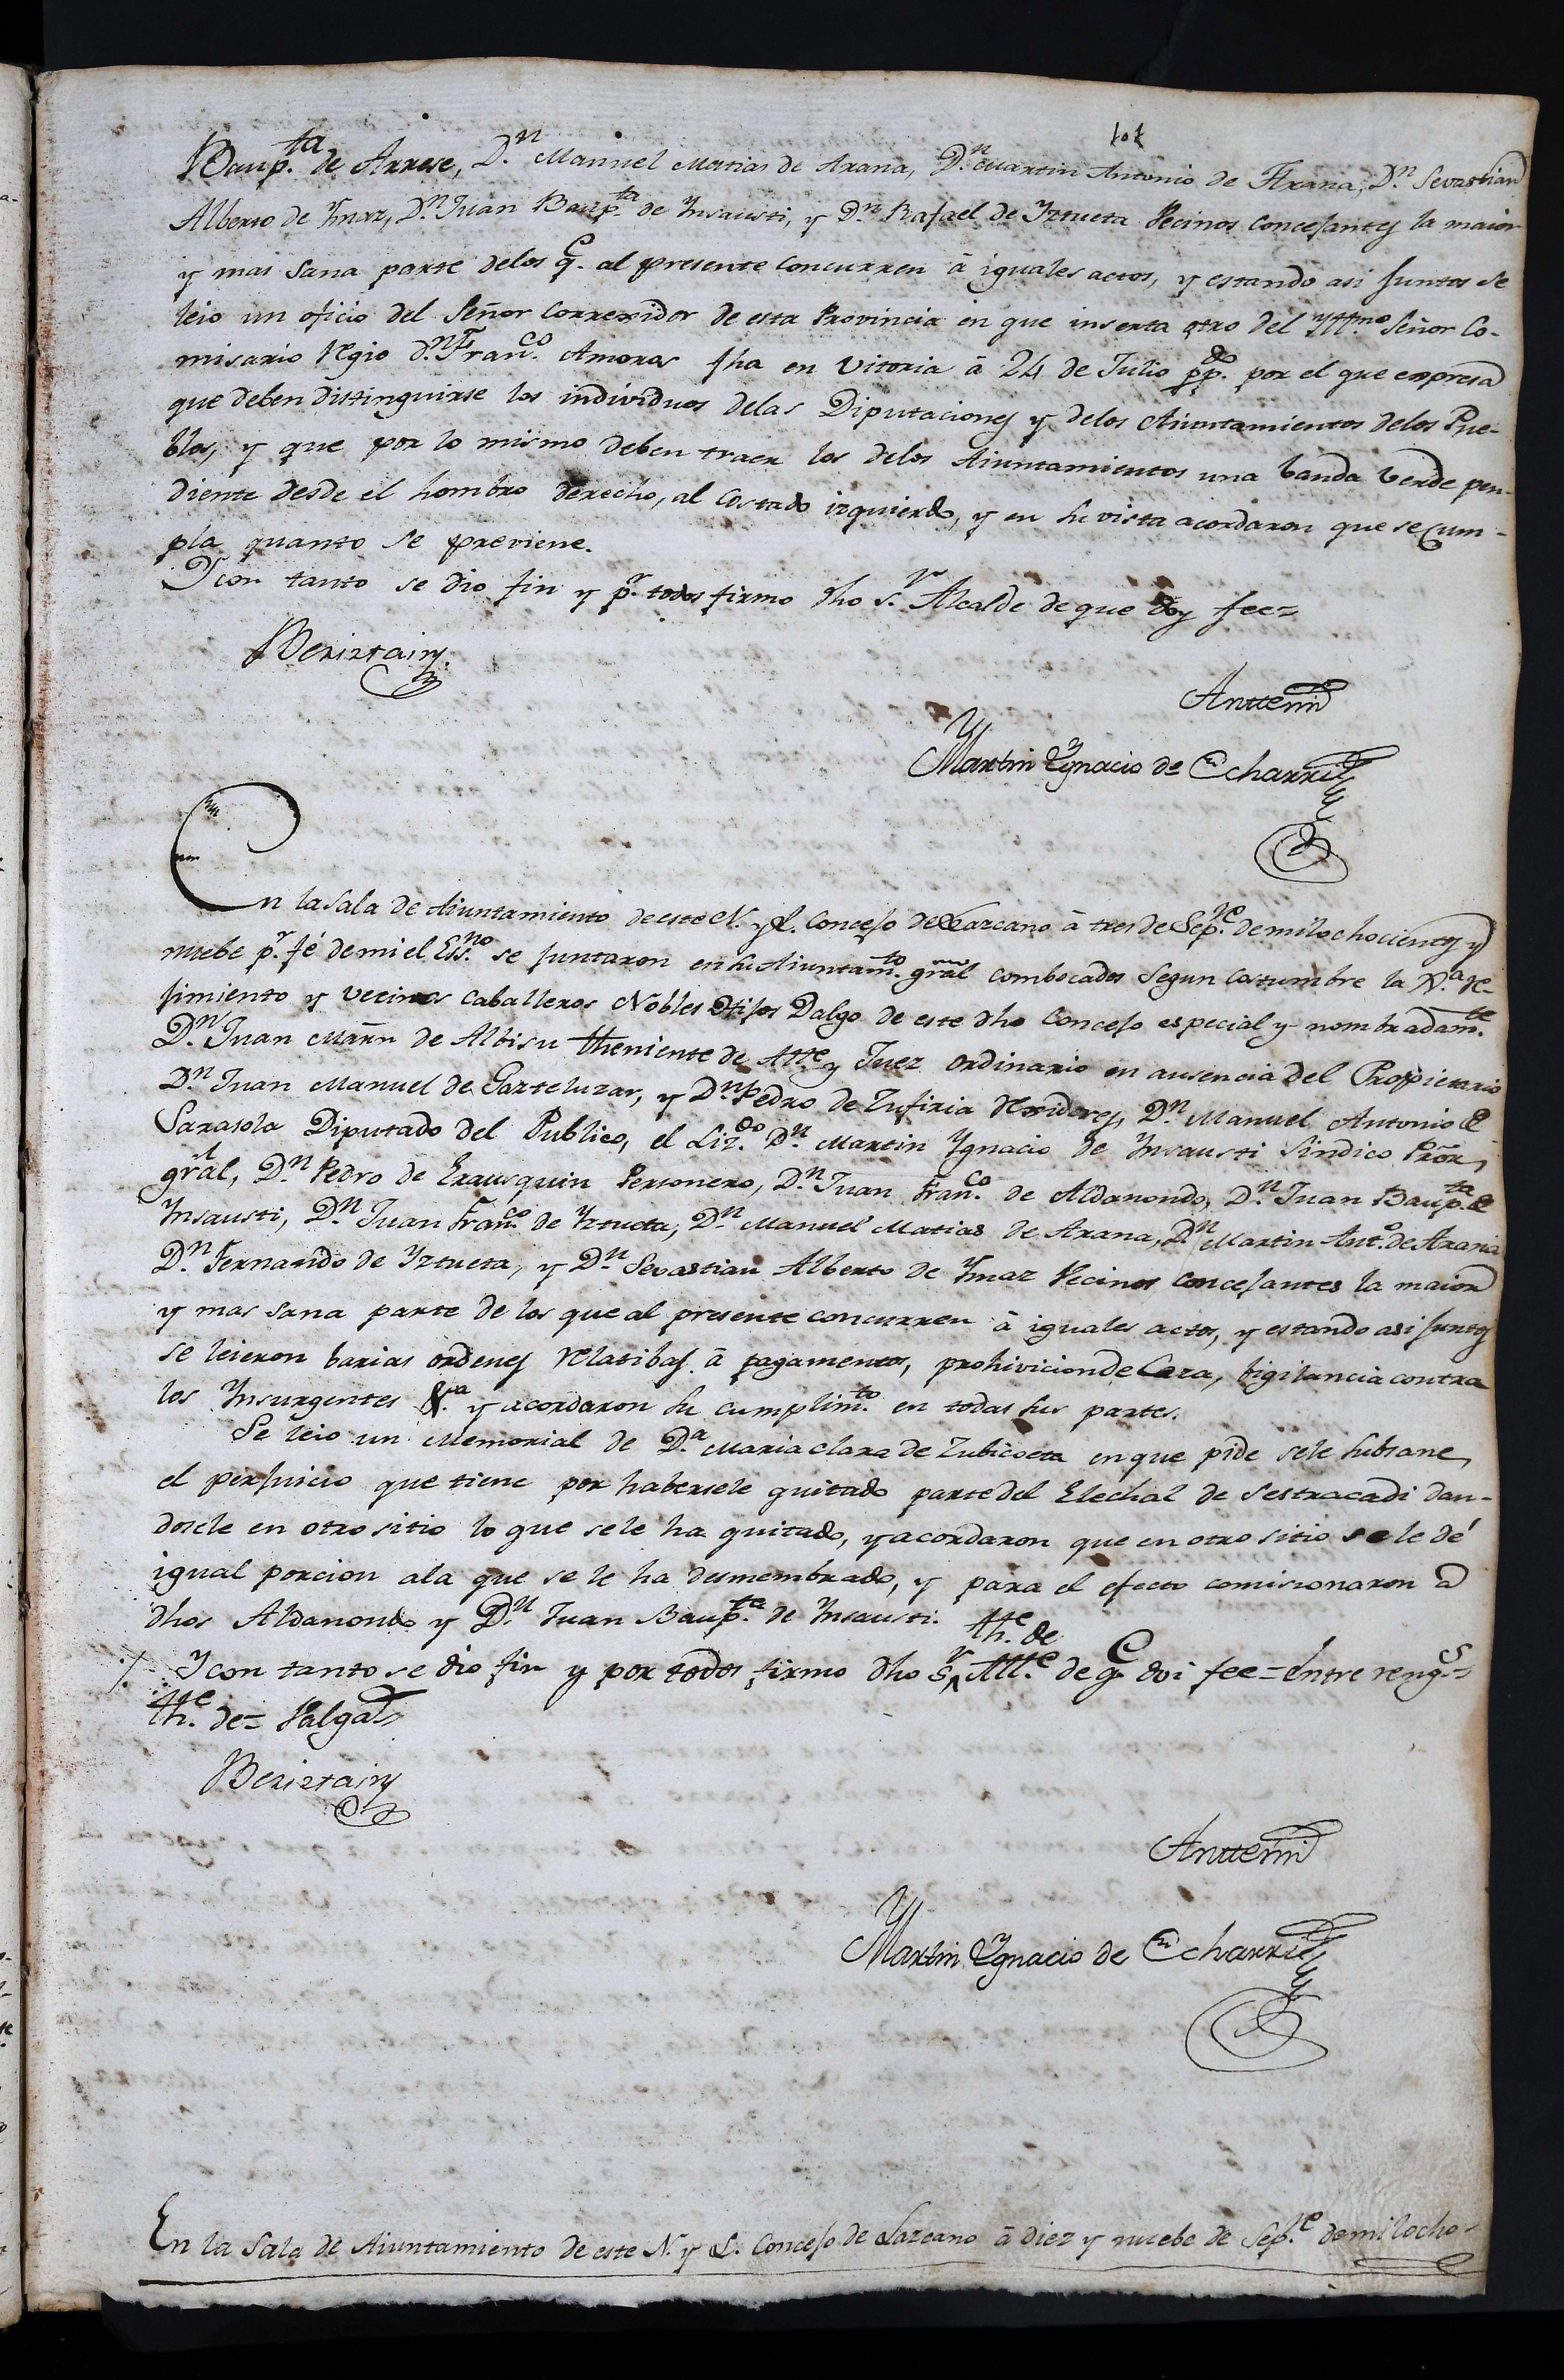 101
Baup.ta de Arrese, D.n Manuel Matias de Arana, D.n Martin Antonio de Arana, D.n Sevastian
Alberto de Ymaz, D.n Juan Baup.ta de Ynsausti, y D.n Rafael de Yztueta Vecinos Concejantes la maior
y mas sana parte delos q.e al presente concurren à iguales actos, y estando asi juntos se
leio un oficio del Señor Correxidor de esta Provincia en que inserta otro del Yttmo Señor Co-
misario Regio D.n Fran.co Amoros fha en Vitoria à 24 de Julio pp.do por el que expresa
que deben distinguirse los individuos delas Diputaciones y delos Aiuntamientos delos Pue-
blos, y que por lo mismo deben traer los delos Aiuntamientos una banda verde pen-
diente desde el hombro derecho, al Costado izquierdo, y en su vista acordaron que se Cum-
pla quanto se previene.
Y con tanto se dio fin y p.r todos firmo dho S.r Alcalde de que doy fee=
Beriztain
Anttemi
Martin Ygnacio de Echarri
En la Sala de Aiuntamiento de este N. y L. Concejo de Lazcano à tres de Sep.re de mil ochocientos y
nuebe p.r fé de mi el Ess.no se juntaron en su Aiuntam.to gral combocados segun costumbre la N.a Re-
jimiento y vecinos Caballeros Nobles Hijos Dalgo de este dho Concejo especial y nombradam.te
D.n Juan Marn de Albisu theniente de Alle y Juez ordinario en ausencia del Propietario
D.n Juan Manuel de Gazteluzar, y D.n Pedro de Zufiria Rexidores, D.n Manuel Antonio de
Sarasola Diputado del Publico, el Liz.do D.n Martin Ygnacio de Ynsausti Sindico Pror,
gral, D.n Pedro de Erausquin Personero, D.n Juan Fran.co de Aldanondo, D.n Juan Baup.ta de
Ynsausti, D.n Juan Fran.co de Yztueta, D.n Manuel Matias de Arana, D.n Martin Ant.o de Arana
D.n Fernando de Yztueta, y D.n Sevastian Alberto de Ymaz Vecinos Concejantes la maior
y mas sana parte de los que al presente concurren à iguales actos, y estando asi juntos
se leieron barias ordenes relatibas à pagamentos, prohivicion de Caza, bigilancia contra
los Ynsurgentes &.a y acordaron su cumplim.to en todas sus partes.
Se leio un Memorial de D.a Maria Clara de Zubicoeta en que pide sele subsane
el perjuicio que tiene por habersele quitado parte del Elechal de Sestracadi dan-
dosele en otro sitio lo que sele ha quitado, y acordaron que en otro sitio se le dé
igual porcion ala que se le ha desmembrado, y para el efecto comisionaron a
dhos Aldanondo y D.n Juan Baup.ta de Ynsausti.
th.e de
Y con tanto se dio fin y por todos firmo dho S.r Alle de q.e doi fee = Entre reng.s=
th.e de= Valga=
Beriztain
Anttemi
Martin Ygnacio de Echarri
En la Sala de Aiuntamiento de este N. y L. Concejo de Lazcano à diez y nuebe de Sep.re de mil ocho-